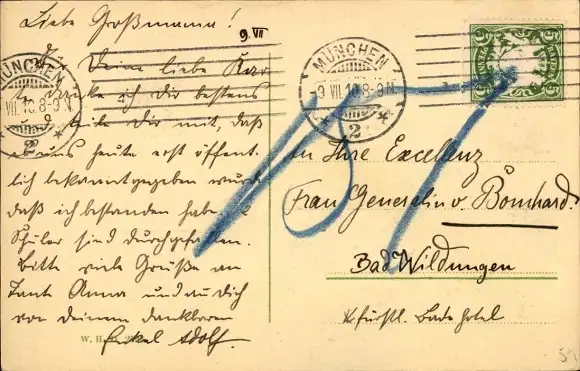 Liebe Großmama!
9. VII
Für Deine liebe Kar-
te danke ich Dir bestens
und teile Dir mit, daß
uns heute erst öffent-
lich bekanntgegeben wurde
daß ich bestanden habe. 2
Schüler sind durchgefallen.
Bitte viele Grüße an
Tante Anna und an Dich
von Deinem dankbaren
Enkel Adolf.
W. H.
MÜNCHEN
VII 10. 8-9 N
2
MÜNCHEN
9. VII. 10. 8-9 N.
2
5 5
BAYERN
An Ihre Excellenz
Frau Generalin v. Bomhard.
Bad Wildungen
Fürstl. Badehotel